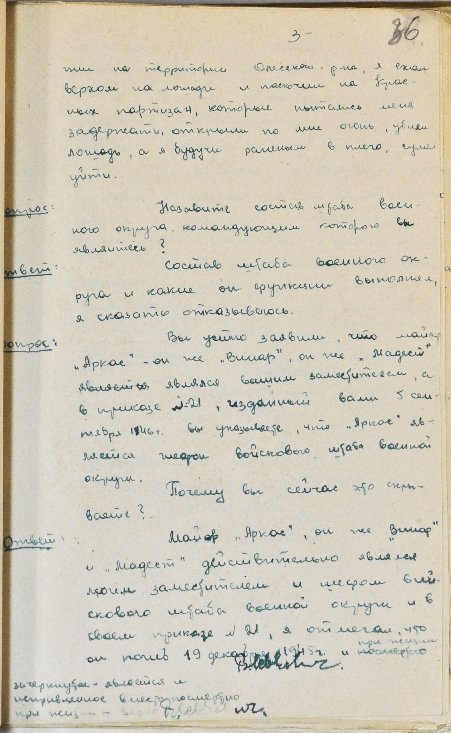 3-
36.
тии на территории Олесского р-на, я ехал
верхом на лошади и наскочил на Крас-
ных партизан, которые пытаясь меня
задержать, открыли по мне огонь, убили
лошадь, а я будучи раненым в плечо, сумел
уйти.
опрос: Назовите состав штаба воен-
ного округа командующим которого вы
являетесь?
твет: Состав штаба военного ок-
руга и какие он функции выполнял,
я сказать отказываюсь.
опрос: Вы устно заявили, что майор
„Аркас" - он же „Вишар", он же „Мадест"
является являлся вашим заместителем, а
в приказе №21, изданный вами 5 сен-
тября 1946г. вы указываете, что „Аркас" яв-
ляется шефом войскового штаба военной
округи.
Почему вы сейчас это скры-
ваете?
Ответ: Майор „Аркас", он же "Вишар"
и „Мадест" действительно являлся
моим заместителем и шефом вой-
скового штаба военной округи и в
своем приказе №21, я отмечал, что
он погиб 19 декабря 1945г. и при жизни
посмертно
зачеркнутое - является и
исправленное вместо посмертно
при жизни -